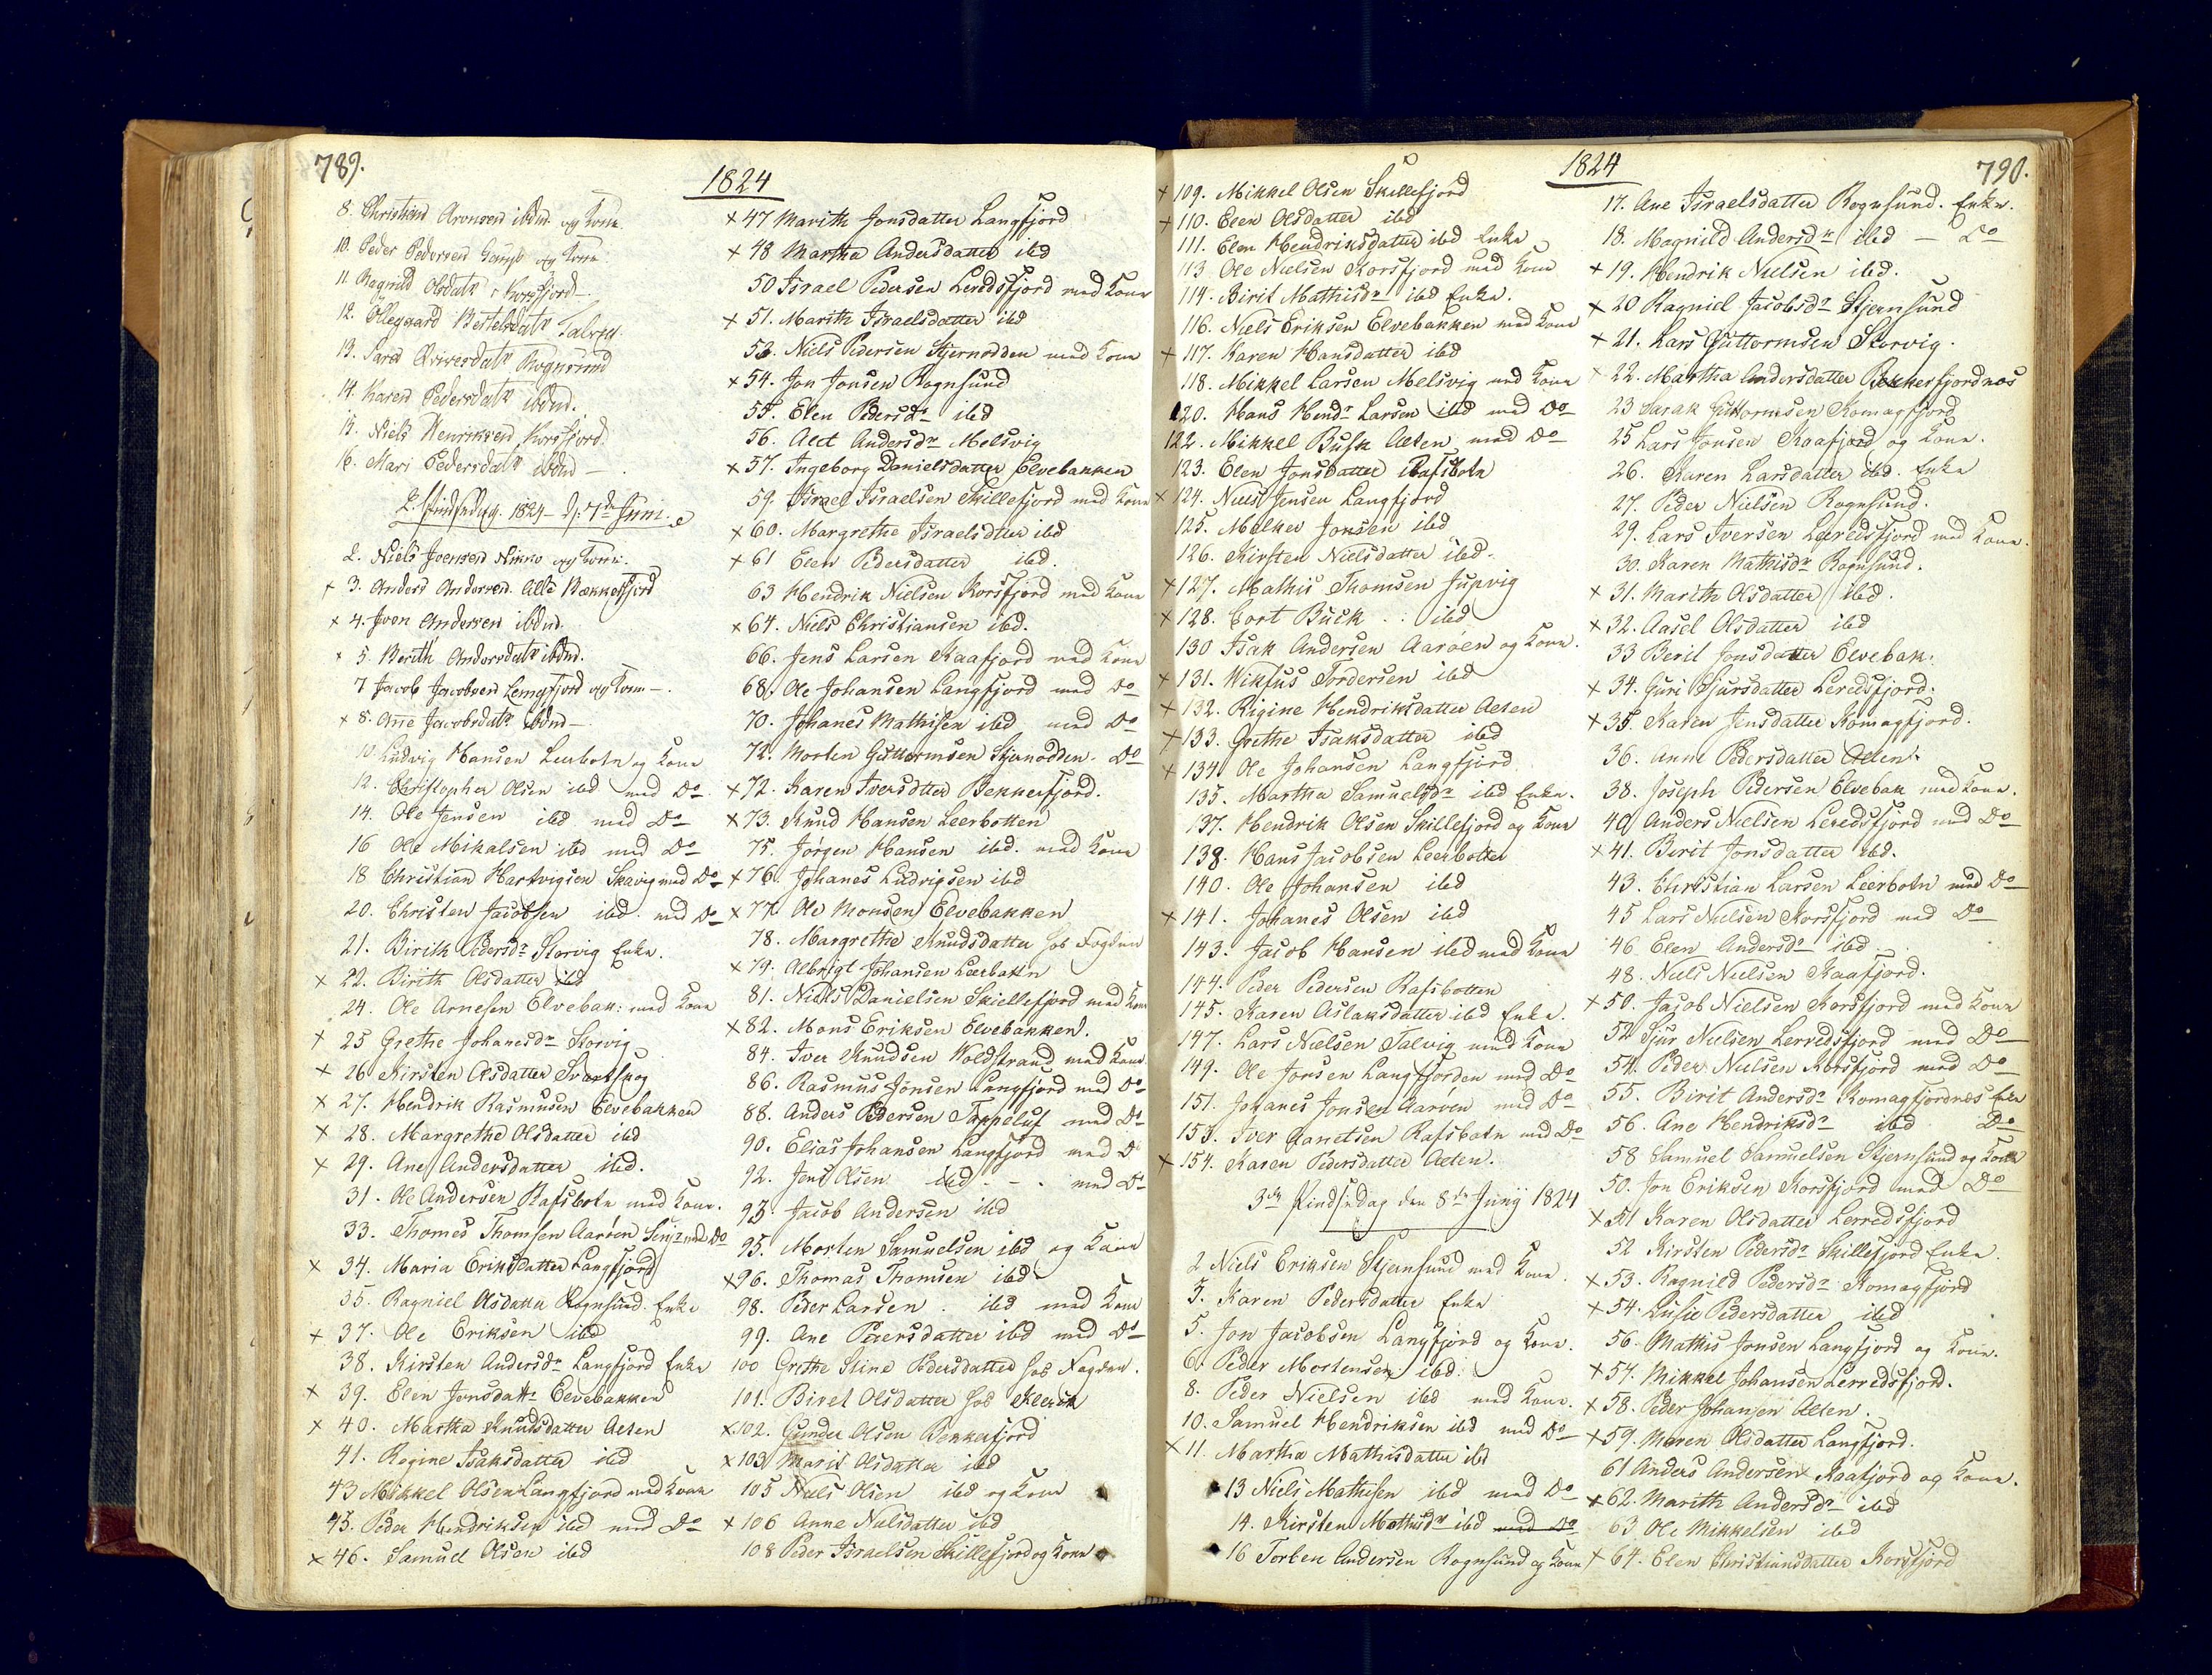 789.
1824
8. Christian Aronsen ibdm. og Kone.
10. Peder Pedersen og Kone.
11. Ragnild Olsdatr Korsfjord.
12. Ollegaard Bertelsdatr Talvig.
13. Sara Iversdatr Rognsund
14. Karen Pedersdatr ibdm.
15. Niels Henriksen Korsfjord.
16. Mari Pedersdatr ibdm
2. Pindsedag. 1824 d: 7de Juni
2. Niels Iversen og Kone.
× 3. Anders Andersen Bækkerfjord
× 4. Iven Andersen ibdm.
× 5. Berith Andersdatr ibdm.
7 Jacob Jacobsen Langfjord og Kone.
× 8. Ane Jacobsdatr ibdm
10. Ludvig Hansen Leerbotn og Kone
12. Christopher Olsen ibd med Do
14. Ole Jensen ibd med Do
16 Ole Mikalsen ibd med Do
18 Christian Hartvigsen Skavig med Do
20. Christen Jacobsen ibd. med Do
21. Birith Pedersdr Storvig Enke.
× 22. Birith Olsdatter ibd
24. Ole Arnesen Elvebak: med Kone
× 25 Grethe Johanesdr Storvig
× 26 Kirsten Olsdatter Svartskog
× 27. Hendrik Rasmusen Elvebakken
× 28. Margrethe Olsdatter ibd
× 29. Ane Andersdatter ibd.
31. Ole Andersen Rafsbotn med Kone.
33. Thomes Thomsen Aarøen Senj: med Do
× 34. Maria Eriksdatter Langfjord
35. Ragniel Olsdatter Rognsund. Enke
× 37. Ole Eriksen ibd
38. Kirsten Andersdr Langfjord Enke
× 39. Elen Jonsdatr Elvebakken
× 40. Martha Knudsdatter Aeten
41. Regine Isaksdatter ibd
43 Mikkel Olsen Langfjord med Kone
45. Peder Hendriksen ibd med Do
× 46. Samuel Olsen ibd
× 47 Marith Jonsdatter Langfjord
× 48 Martha Andersdatter ibd
50 Israel Pedersen Leredsfjord med Kone
× 51. Marith Israelsdatter ibd
53. Niels Pedersen Stjernodden med Kone
× 54. Jon Jonsen Rognsund
55. Elen Pedersdr ibd
56. Alet Andersdr Melsvig
× 57. Ingeborg Danielsdatter Elvebakken
59. Israel Israelsen Skillefjord med Kone
× 60. Margrethe Israelsdtter ibd
× 61 Elen Pedersdatter ibd.
63 Hendrik Nielsen Korsfjord med Kone
× 64. Niels Christiansen ibd.
66. Jens Larsen Kaafjord med Kone
68. Ole Johansen Langfjord med Do
70. Johanes Mathisen ibd med Do
72. Morten Guttormsen Stjernodden. Do
× 72. Karen Iversdtter Bekkerfjord.
× 73. Knud Hansen Leerbotten
75. Jørgen Hansen ibd. med Kone
× 76. Johanes Ludvigsen ibd
× 77. Ole Monsen Elvebakken
78. Margrethe Knudsdatter hos Fogden
× 79. Albrigt Johansen Leerbott'n
81. Niels Danielsen Skillefjord med Kone
× 82. Mons Eriksen Elvebakken.
84. Iver Knudsen Woldstrand med Kone
86. Rasmus Jonsen Langfjord med Do
88. Anders Pedersen Tappeluf med Do
90. Elias Johansen Langfjord med D
92. Jens Olsen ibd. - . med Do
93. Jacob Andersen ibd
95. Morten Samuelsen ibd og Kone
× 96. Thomas Thomsen ibd
98. Peder Larsen . ibd med Kone
99. Ane Pedersdatter ibd med Do
100 Grethe Stine Pedersdatter hos Fogden.
101. Biret Olsdatter hos Kleevik
× 102. Gunder Olsen Bekkerfjord
× 103 Marit Olsdatter ibd
105 Niels Olsen ibd og Kone
× 106 Anne Nielsdatter ibd
108 Peder Israelsen Skillefjord og Kone
1824
790.
× 109. Mikkel Olsen Skillefjord
× 110. Elen Olsdatter ibd
111. Elen Hendriksdatter ibd Enke
113 Ole Nielsen Korsfjord med Kone
114. Birit Mathisdr ibd Enke.
116. Niels Eriksen Elvebakken med Kone
× 117. Karen Hansdatter ibd
118. Mikkel Larsen Melsvig med Kone
120. Hans Hendr Larsen ibd med Do
122. Mikkel Busk Aeten med Do
123. Elen Jonsdatter Rafsbotn
× 124. Niels Jensen Langfjord
125. Melker Jonsen ibd
126. Kirsten Nielsdatter ibd.
× 127. Mathis Thomsen Jupvig
× 128. Cort Buck . : ibd
130 Isak Andersen Aarøen og Kone.
× 131. Wikfus Tordersen ibd
× 132. Rigine Hendriksdatter Aeten
× 133. Grethe Isaksdatter ibd
× 134 Ole Johansen Langfjord
135. Martha Samuelsdr ibd Enke.
137. Hendrik Olsen Skillefjord og Kone
138. Hans Jacobsen Leerbotten
140. Ole Johansen ibd
× 141. Johanes Olsen ibd
143. Jacob Hansen ibd med Kone
144. Peder Pedersen Rafsbotten
145. Karen Aslaksdatter ibd Enke.
147. Lars Nielsen Talvig med Kone
149. Ole Jonsen Langfjorden med Do
151. Johanes Jonsen Aarøen med Do
153. Iver Rafsbotn med Do
× 154. Karen Pedersdatter Aeten.
3die Pindsedag den 8de Junij 1824
2 Niels Eriksen Stjernsund med Kone.
3. Karen Pedersdatter Enke
5. Jon Jacobsen Langfjord og Kone.
6. Peder Mortensen ibd.
8. Peder Nielsen ibd med Kone.
10. Samuel Hendriksen ibd med Do
× 11. Martha Mathisdatter ibd
13 Niels Mathisen ibd med Do
14. Kirsten Mathisdr ibd med Do
16 Torben Andersen Rognsund og Kone
17. Ane Israelsdatter Rognsund. Enke.
18. Magnild Andersdr ibd — Do
× 19. Hendrik Nielsen ibd.
× 20 Ragniel Jacobsdr Stjernsund
× 21. Lars Guttormsen Storvig.
× 22. Martha Andersdatter Bekkerfjordnæs
23 Sarak Guttormsen Komagfjord
25 Lars Jonsen Kaafjord og Kone.
26. Karen Larsdatter ibd. Enke
27. Peder Nielsen Rognsund.
29. Lars Iversen Leeredsfjord med Kone.
30. Karen Mathisdr Rognsund.
× 31. Marith Olsdatter ibd.
× 32. Aasel Olsdatter ibd
33 Berit Jonsdatter Elvebak.
× 34. Guri Sjursdatter Leredsfjord.
× 35. Karen Jensdatter Komagfjord.
36. Anne Pedersdatter Aeten.
38. Joseph Pedersen Elvebak med Kone.
40 Anders Nielsen Leredsfjord med Do
× 41. Berit Jonsdatter ibd.
43. Christian Larsen Leerbotn med Do
45 Lars Nielsen Korsfjord med Do
46 Elen Andersdr ibd.
48. Niels Nielsen Kaafjord.
× 50. Jacob Nielsen Korsfjord med Kone
52 Sjur Nielsen Lerredsfjord med Do
54. Peder Nielsen Korsfjord med Do
55. Birit Andersdr Komagfjordnæs Enke
56. Ane Hendriksdr ibd Do
58 Samuel Samuelsen Stjernsund og Kone
50. Jon Eriksen Korsfjord med Do
× 51 Karen Olsdatter Lerredsfjord
52 Kirsten Pedersdr Skillefjord Enke.
× 53. Ragnild Pedersdr Komagfjord
× 54. Lusie Pedersdatter ibd
56. Mathis Jonsen Langfjord og Kone.
× 57. Mikkel Johansen Lerredsfjord.
× 58. Peder Johansen Aeten.
× 59. Maren Olsdatter Langfjord.
61 Anders Andersen Kaafjord og Kone.
× 62. Marith Andersdr ibd
63 Ole Mikkelsen ibd
× 64. Elen Christiansdatter Korsfjord